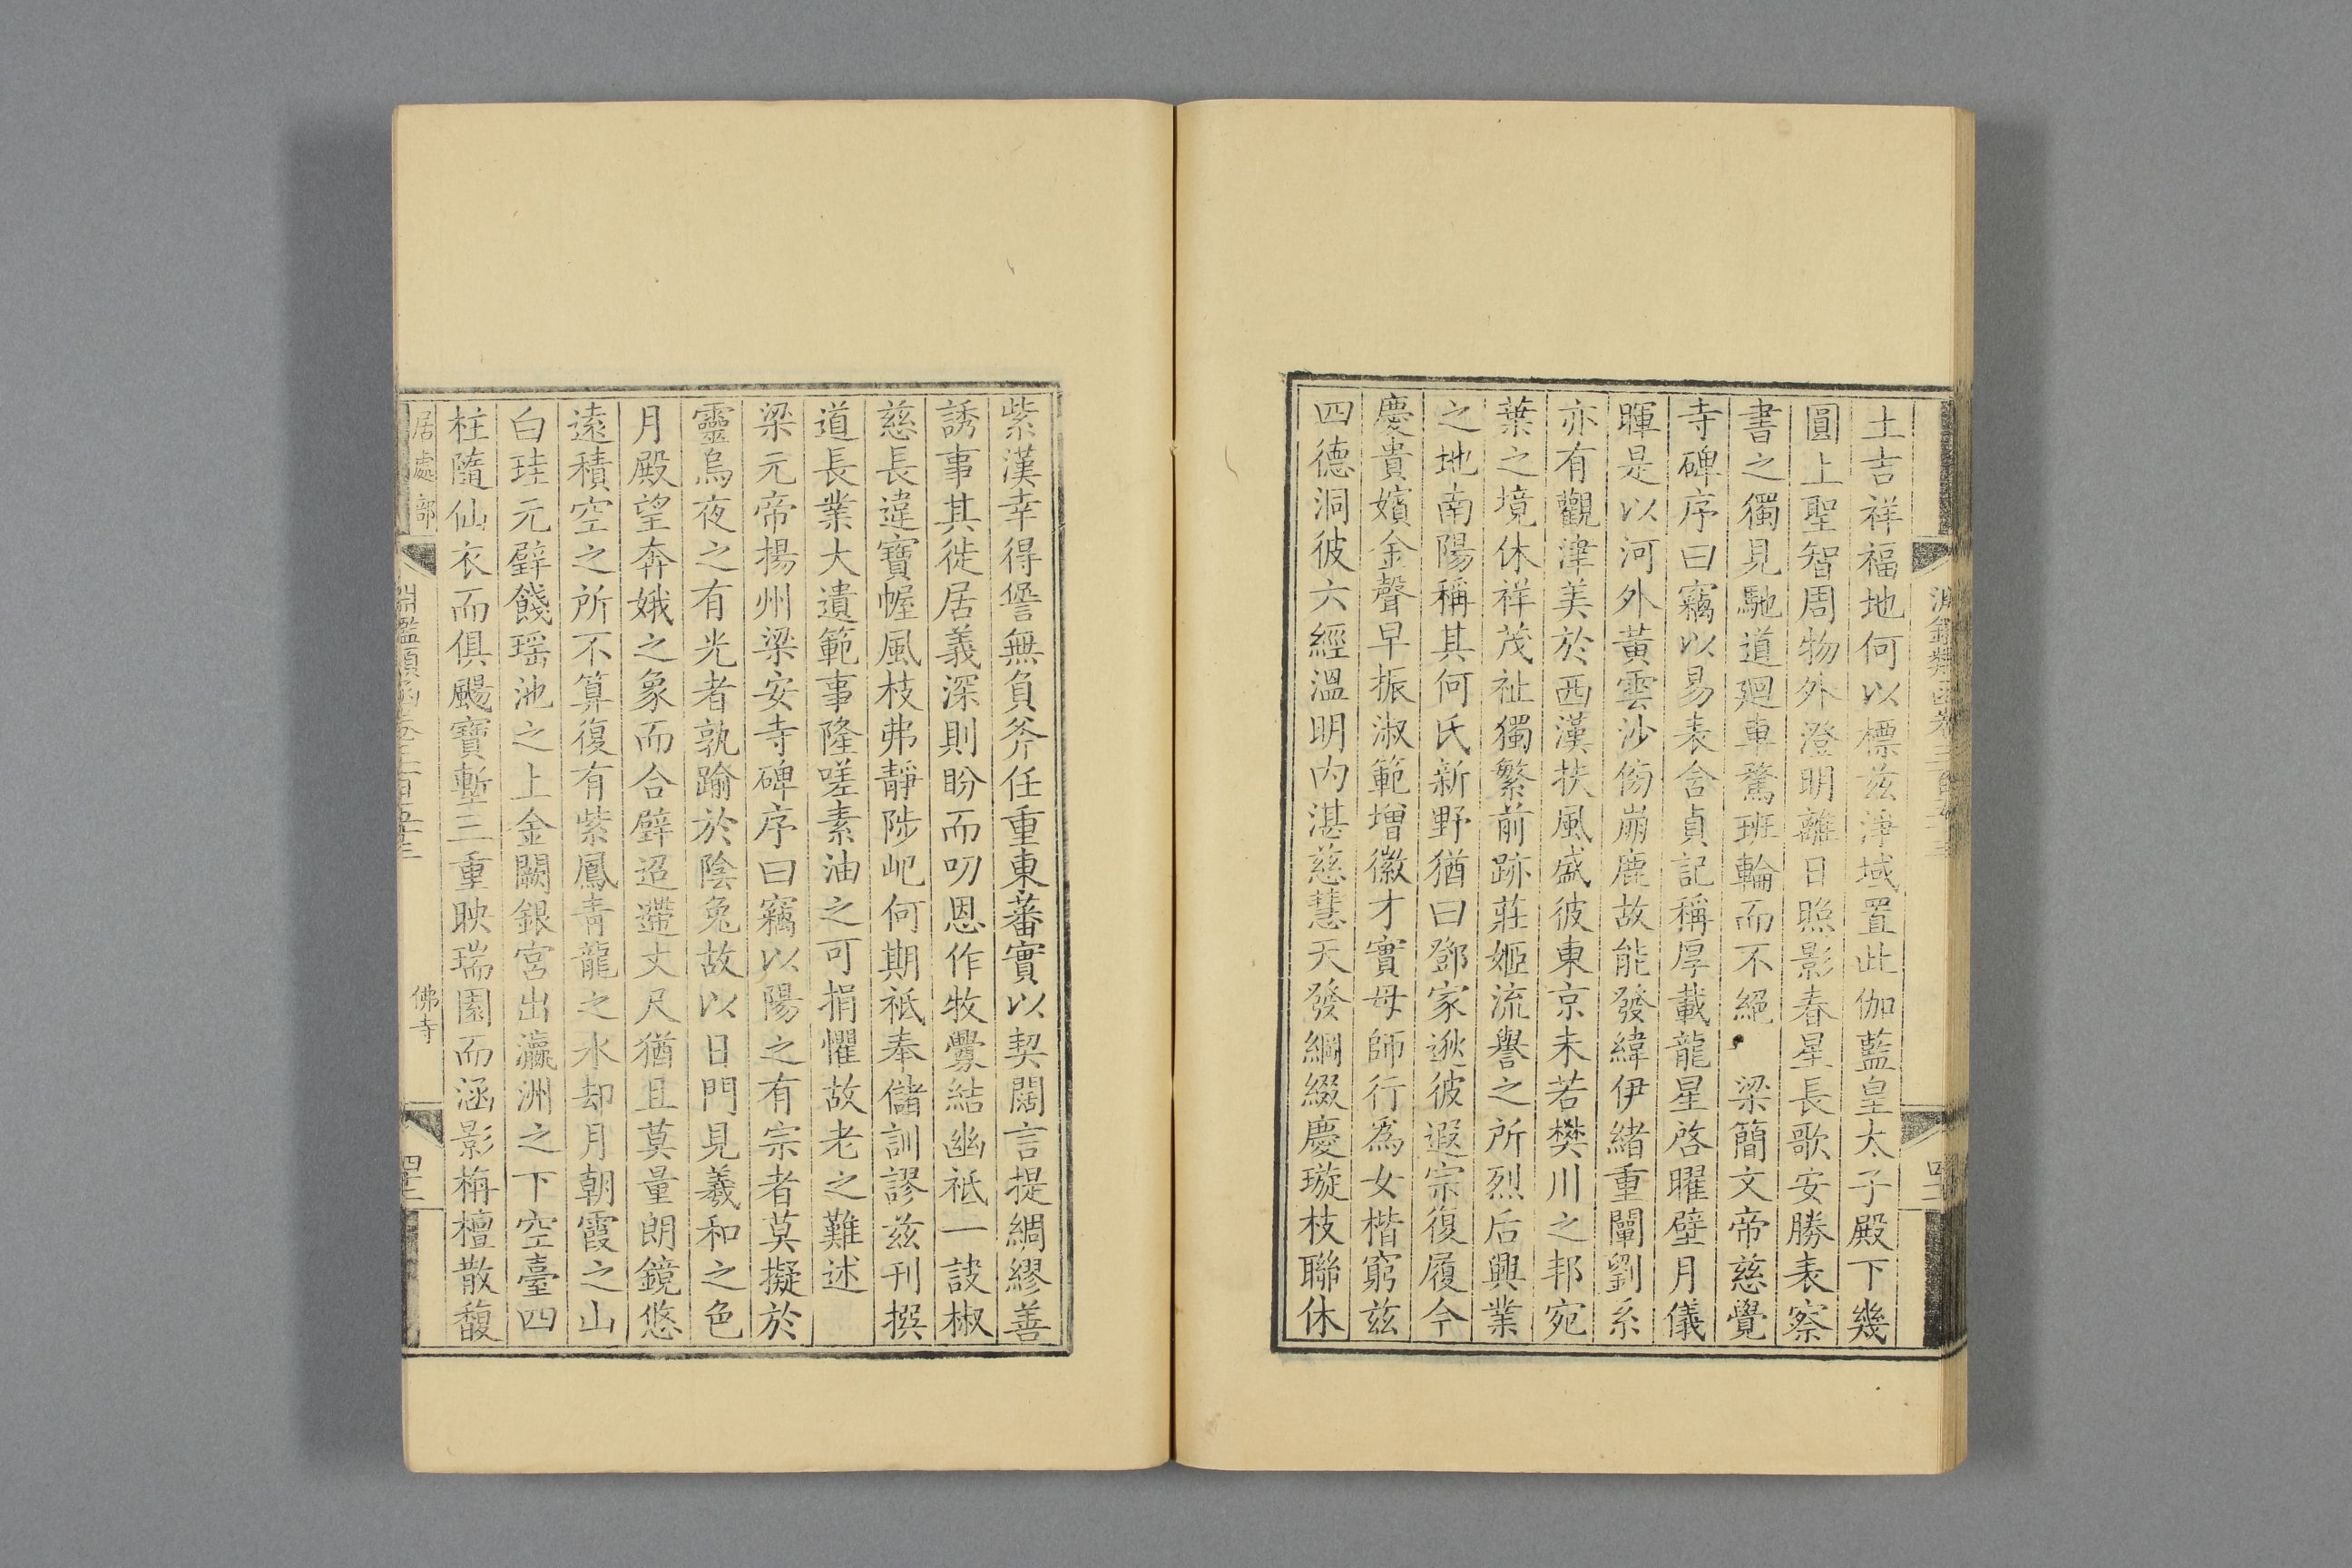 土吉祥福地何以標茲淨域置此伽藍皇太子殿下幾
圓上聖智周物外澄明離日照影春星長歌安勝表察
書之獨見馳道廻車驚班輪而不絕　梁簡文帝慈覺
寺碑序曰竊以易表含貞記稱厚載龍星啓曜壁月儀
暉是以河外黃雲沙傍崩鹿故能發緯伊緒重闡劉系
亦有觀津美於西漢扶風盛彼東京未若樊川之邦宛
葉之境休祥茂祉獨繁前跡莊姬流譽之所烈后興業
之地南陽稱其何氏新野猶曰鄧家逖彼遐宗復履今
慶貴嬪金聲早振淑範增徽才實母師行為女楷窮茲
四德洞彼六經溫明內湛慈慧天發綢綴慶璇枝聯休
紫漢幸得譽無負斧任重東蕃實以契闊言提綢繆善
誘事其徙居義深則盼而叨恩作牧釁結幽祇一訣椒
慈長違寶幄風枝弗靜陟屺何期祗奉儲訓謬茲刊撰
道長業大遺範事隆嗟素油之可捐懼故老之難述
梁元帝揚州梁安寺碑序曰竊以陽之有宗者莫擬於
靈烏夜之有光者孰踰於陰兔故以日門見羲和之色
月殿望奔娥之象而合璧迢遰丈尺猶且莫量朗鏡悠
遠積空之所不算復有紫鳳青龍之水却月朝霞之山
白珪元璧餞瑶池之上金闕銀宮出瀛洲之下空臺四
柱隨仙衣而俱颺寶塹三重映瑞園而涵影栴檀散馥
居處部　淵鑑類函卷三百五十三　佛寺　四十二